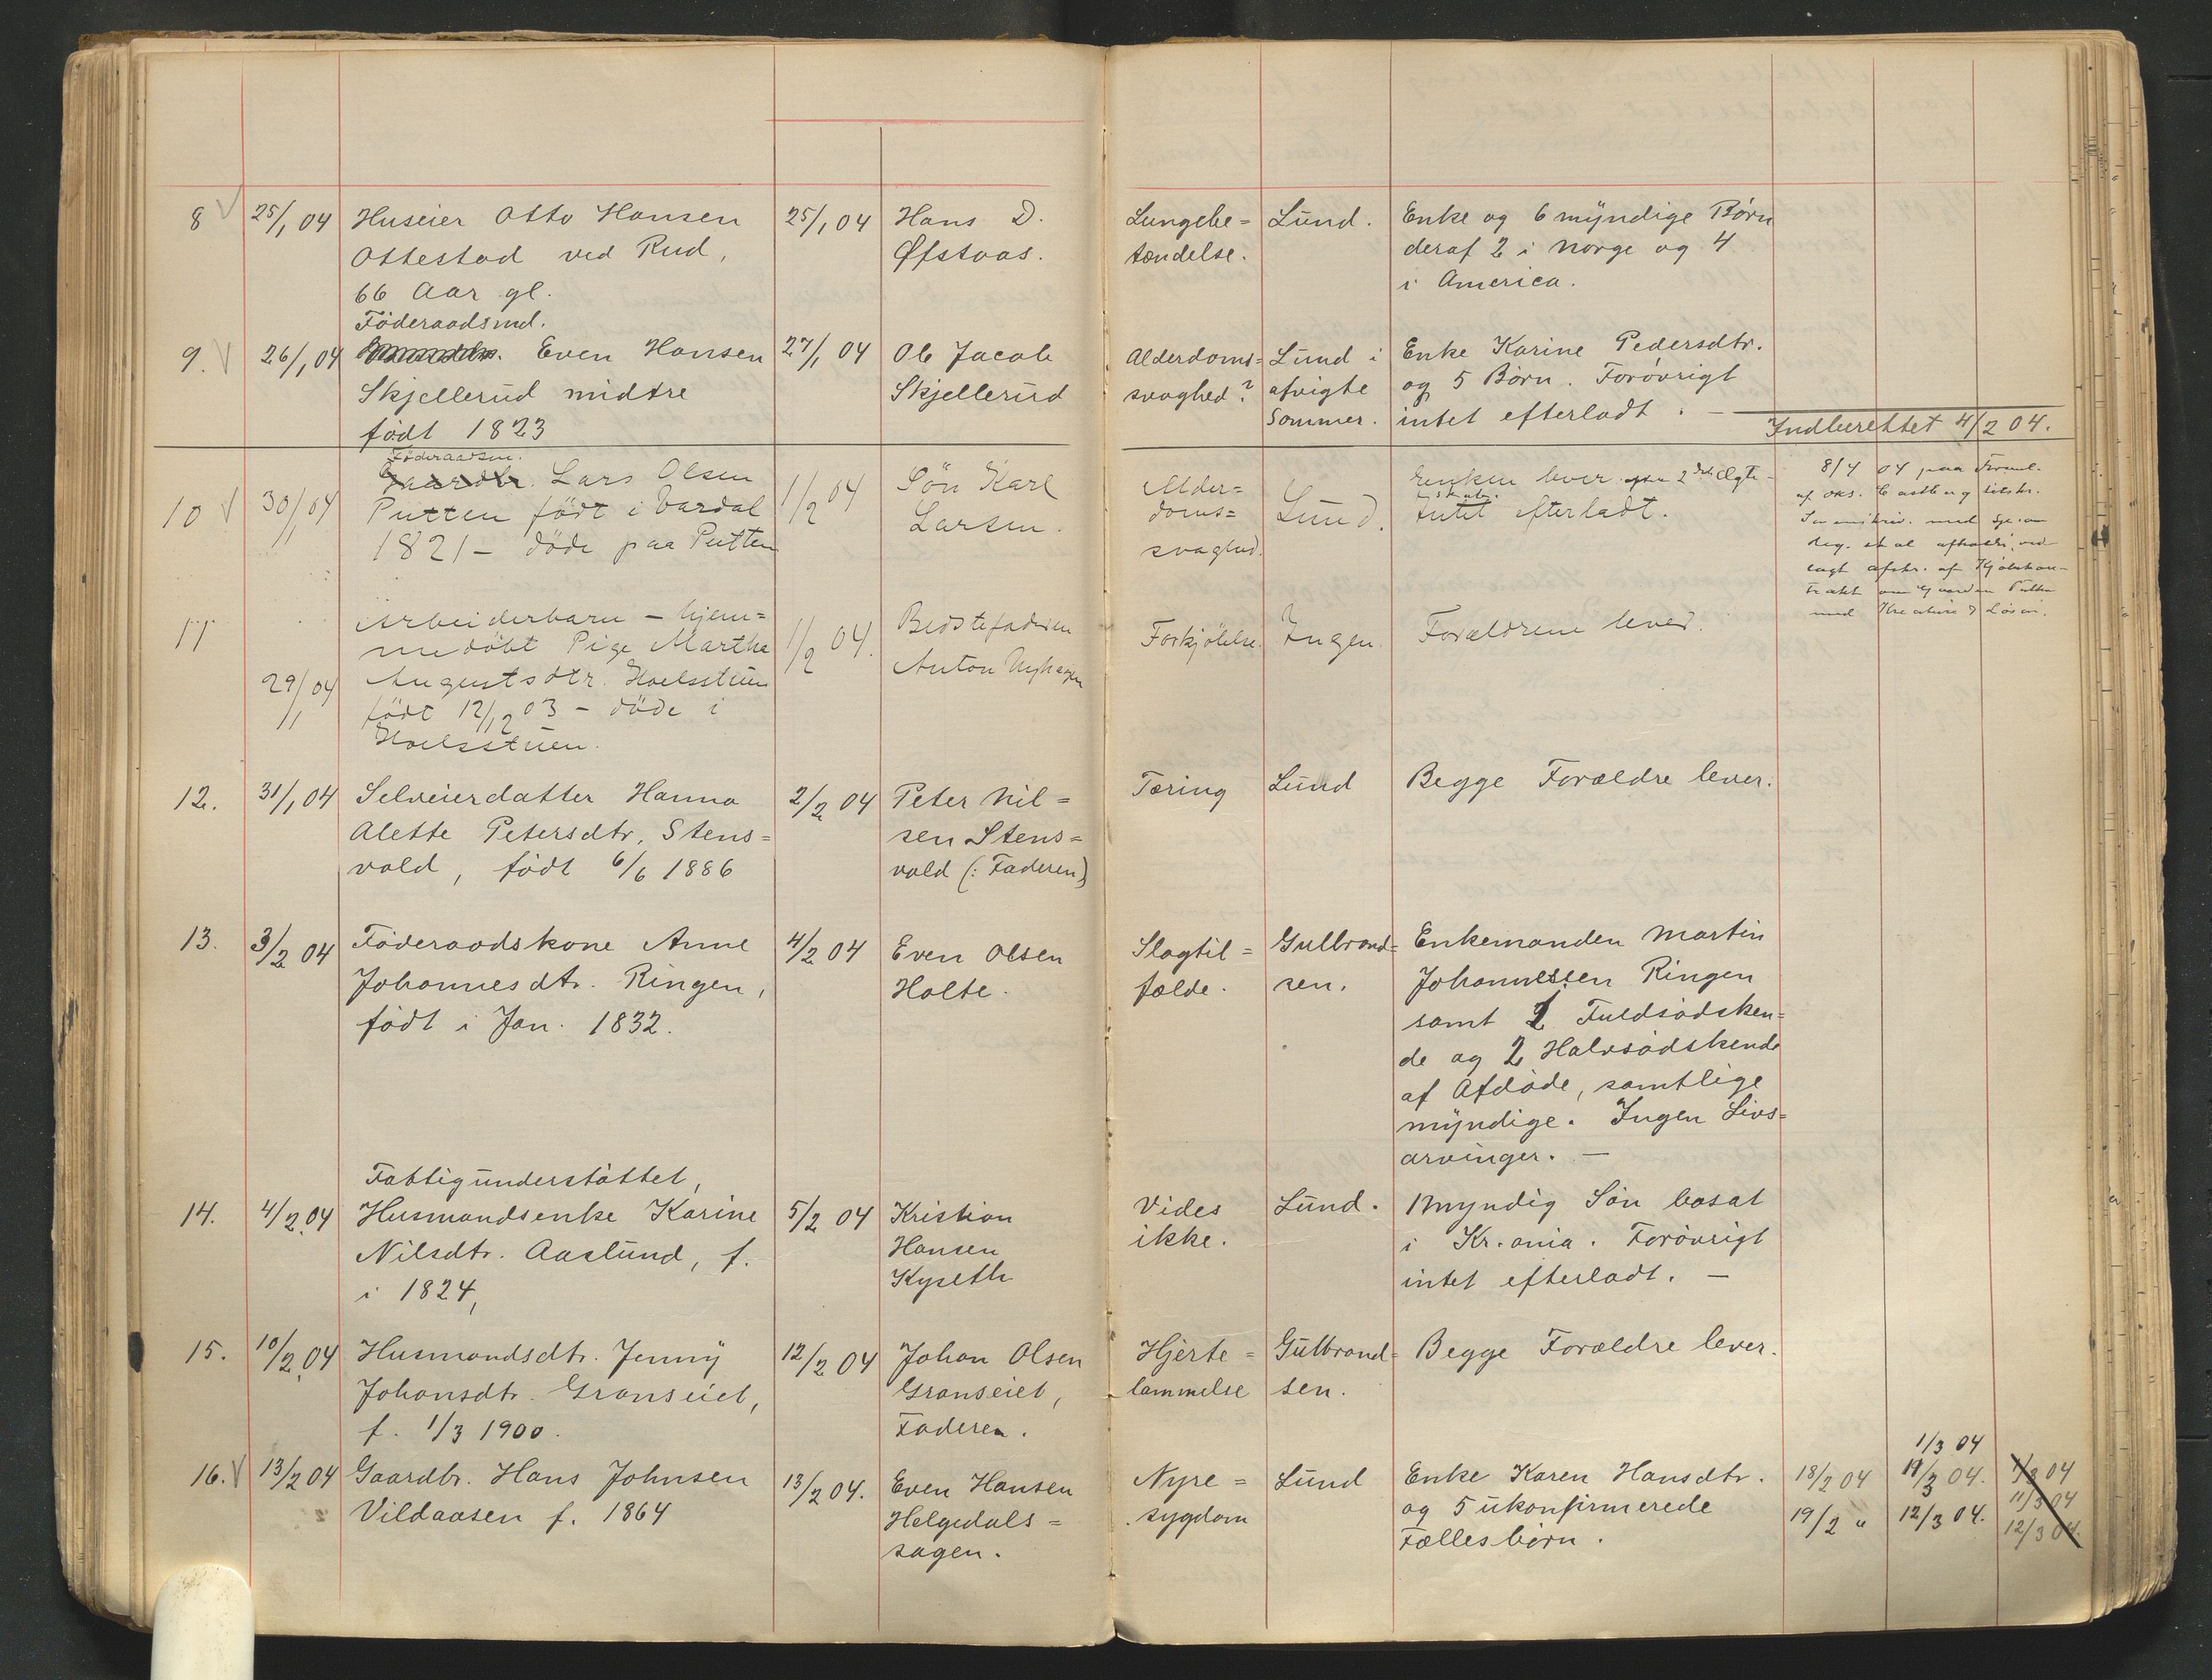 8 25/1 04 Huseier Otto Hansen 25/1 04 Hans D. Lungebe= Lund. Enke og 6 myndige Børn
Ottestad ved Rud, Øfstaas. tændelse. deraf 2 i Norge og 4
66 Aar gl. i America.
Föderaadsmd.
9. 26/1 04 Even Hansen 27/1 04 Ole Jacob Alderdoms= Lund i Enke Karine Pedersdtr.
Skjellerud midtre Skjellerud svaghed? afvigte og 5 Børn. Forøvrigt
født 1823 Sommer. intet efterladt.
Indberettet 4/2 04.
Föderaadsm.
10 30/1 04 Gaardbr. Lars Olsen 1/2 04 Sön Karl Alder= Lund. Enken lever
Putten födt i Vardal Larsen. doms= Intet efterladt.
1821 - döde paa Putten svaghed.
8/4 04 paa
11 Arbeiderbarn - hjem= 1/2 04. Bedstefaderen Forkjölelse. Ingen. Forældrene lever.
medöbt Pige Martha Anton Nyhagen
29/1 04 Augustsdtr. Hoelsstuen
födt 12/12 03 - döde i
Hoelsstuen.
12. 31/1 04 Selveierdatter Hanna 2/2 04 Peter Nil= Tæring Lund Begge Forældre lever.
Alette Petersdtr. Stens= sen Stens=
vold, født 6/6 1886 vold (: Faderen)
13. 3/2 04 Føderaadskone Anne 4/2 04 Even Olsen Slagtil= Gulbrand= Enkemanden Martin
Johannesdtr. Ringen, Holte. fælde. sen. Johannessen Ringen
født i Jan. 1832. samt 2 Fuldsødsken=
de og 2 Halvsødskende
af Afdøde, samtlige
myndige. Ingen Livs=
arvinger. —
Fattigunderstøttet,
14. 4/2 04 Husmandsenke Karine 5/2 04 Kristian Vides Lund. 1 myndig Søn bosat
Nilsdtr. Aaslund, f. Hansen ikke. i Kr.ania. Forøvrigt
i 1824, Kyseth intet efterladt. —
15. 10/2 04 Husmandsdtr. Jenny 12/2 04 Johan Olsen Hjerte= Gulbrand= Begge Forældre lever.
Johansdtr. Granseiet, Granseiet, lammelse sen.
f. 1/3 1900. Faderen.
1/3 04
16. 13/2 04 Gaardbr. Hans Johnsen 13/2 04. Even Hansen Nyre= Lund Enke Karen Hansdtr. 18/2 04 11/3 04. 1/3 04
Vildaasen f. 1864 Helgedals= sygdom og 5 ukonfirmerede 19/2 " 12/3 04. 11/3 04
sagen. Fællesbørn. 12/3 04.